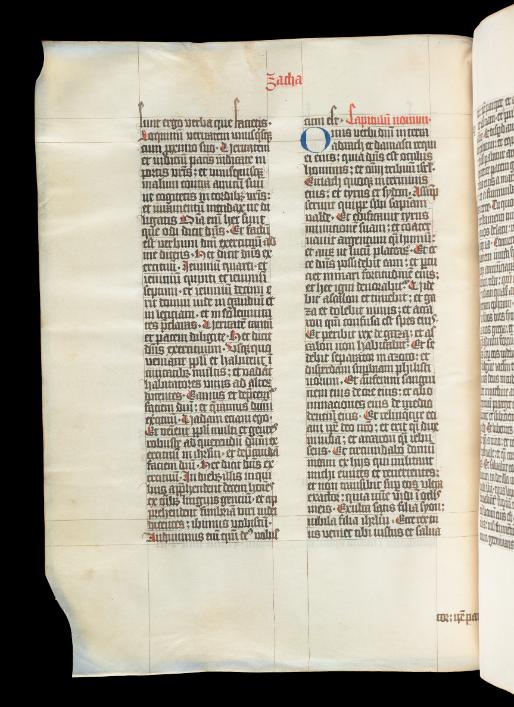 Zacha
sunt ergo verba que facietis.
Loquimini veritatem unusqsq;
cum proximo suo. Veritatem
et iudiciū pacis iudicate in
portis vr̄is: et unusquisq;
malum contra amicū suū
ne cogitetis in cordib; vr̄is:
et iuramentū mendax ne di
ligatis. Oīa em̄ hec sunt
que odi dicit dn̄s. Et factū
est verbum dn̄i exercituū ad
me dicens. Hec dicit dn̄s ex
ercituū. Ieiuniū quarti et
ieiuniū quinti et ieiuniū
septimi. et ieiuniū decimi e
rit domui iude in gaudiū et
in leticiam. et in sollennita
tes p̄claras. Veritatē tantū
et pacem diligite. Hec dicit
dn̄s exercituum. Usq;quo
veniant pp̄li et habitent ī
civitatib; multis: et vadāt
habitatores unus ad alterū
dicentes. Eamus et deprecem̄
faciem dn̄i: et queramus dn̄m
exercituū. Vadam etiam ego.
Et venient pp̄li multi et gentes
robuste ad querendū dn̄m ex
ercituū in ihrl̄m. et deprecandā
faciem dn̄i. Hec dicit dn̄s ex
ercituū. In dieb; illis in qui
bus apprehendent decem hoīes
ex oīb; linguis gentiū. et ap
prehendent fimbriā viri iudei
dicentes: ibimus vobiscū.
Audivimus em̄ qm̄ ds̄ vobis
cum est. Capitulū nonum.
Onus verbi dn̄i in terra
adrach et damasci requi
ei eius: quia dn̄i est oculus
hominis: et oīm tribuū isrl̄.
Emath quoq; in terminis
eius: et tyrus et sydon. Assūp
serunt quippe sibi sapiam
valde. Et edificavit tyrus
munitionē suam: et coacer
vavit argentum q̄si humū:
et aurū ut lutū platearū. Ecc
ce dn̄s possidebit eam: et ꝑcu
ciet in mari fortitudinē eius;
et hec igni devorabit. Vide
bit ascalon et timebit: et ga
za et dolebit nimis: et acca
ron qm̄ confusa est spes eius.
Et peribit rex de gaza: et as
calon non habitabit. Et se
debit separator in azoto: et
disperdam supbiam philisti
norum. Et auferam sangui
nem eius de ore eius: et abo
minationes eius de medio
dentiū eius. Et relinquet̄ eci
am ipe deo nr̄o: et erit q̄si dux
in iuda: et accaron q̄si iebu
seus. Et circumdabo domū
meam ex hiis qui militant
michi euntes et revertentes:
et non transibit sup eos ultra
exactor: quia nūc vidi ī oclīs
meis. Exulta satis filia syon:
iubila filia ihrl̄m. Ecce rex tu
us veniet tibi iustus et salva